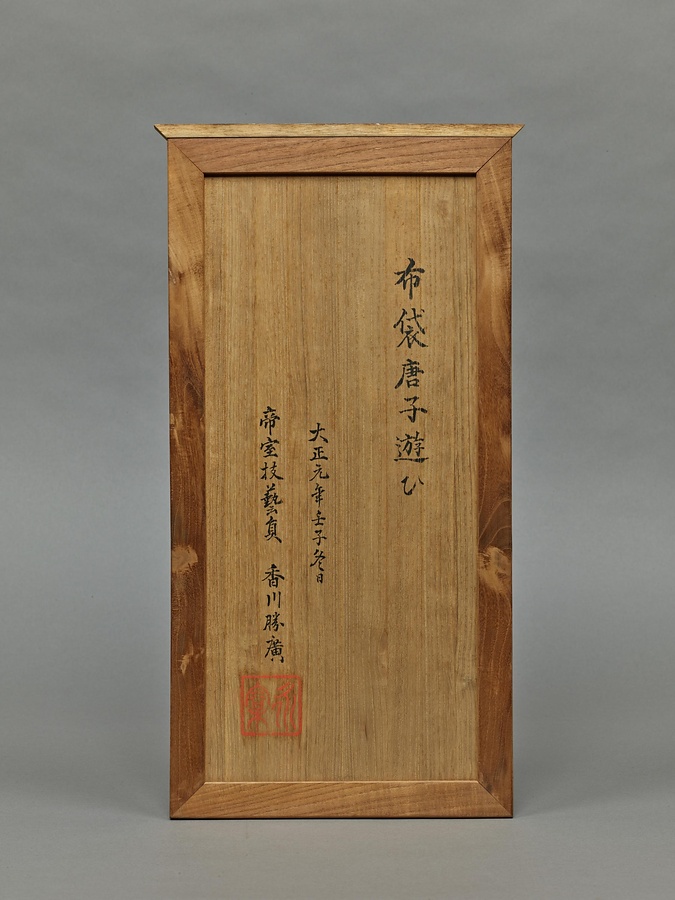 布袋唐子遊ひ
大正元年壬子冬日
帝室技藝員 香川勝廣